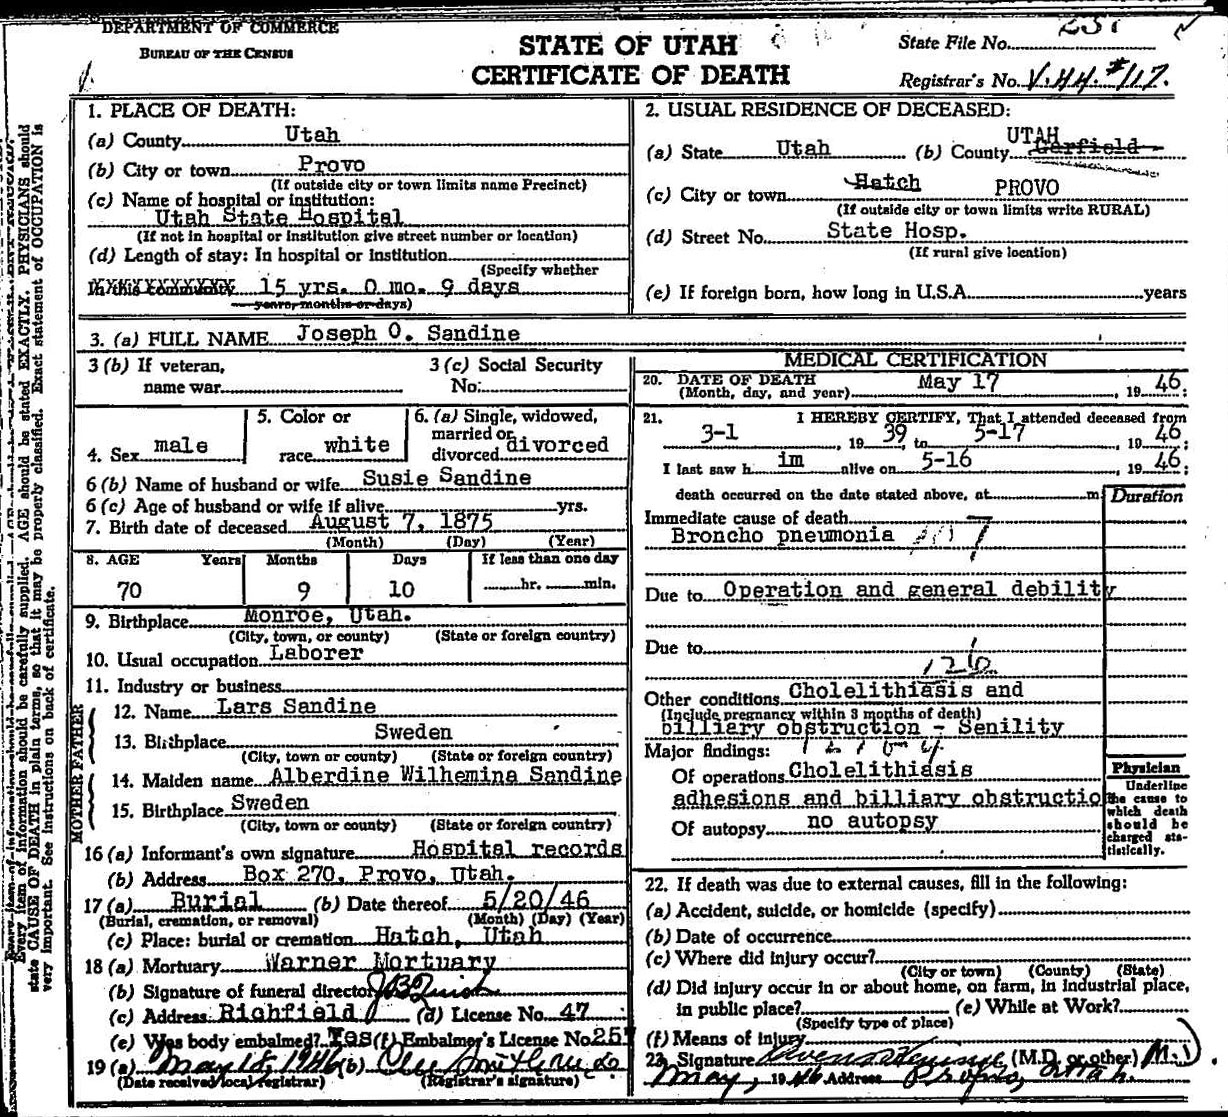 DEPARTMENT OF COMMERCE
BUREAU OF THE CENSUS
STATE OF UTAH
CERTIFICATE OF DEATH
State File No.
Registrar's No. V.44 #117.
Every item of information should be carefully supplied. AGE should be stated EXACTLY. PHYSICIANS should
state CAUSE OF DEATH in plain terms, so that it may be properly classified. Exact statement of OCCUPATION is
very important. See instructions on back of certificate.
1. PLACE OF DEATH:
(a) County Utah
(b) City or town Provo
(If outside city or town limits name Precinct)
(c) Name of hospital or institution:
Utah State Hospital
(If not in hospital or institution give street number or location)
(d) Length of stay: In hospital or institution
(Specify whether
In this community 15 yrs. 0 mo. 9 days
years, months or days)
2. USUAL RESIDENCE OF DECEASED:
(a) State Utah (b) County UTAH Garfield
(c) City or town Hatch PROVO
(If outside city or town limits write RURAL)
(d) Street No. State Hosp.
(If rural give location)
(e) If foreign born, how long in U.S.A. years
3. (a) FULL NAME Joseph O. Sandine
3 (b) If veteran,
name war
3 (c) Social Security
No.
4. Sex male
5. Color or
race white
6. (a) Single, widowed,
married or
divorced divorced
6 (b) Name of husband or wife Susie Sandine
6 (c) Age of husband or wife if alive yrs.
7. Birth date of deceased August 7, 1875
(Month) (Day) (Year)
8. AGE Years Months Days If less than one day
70 9 10 hr. min.
9. Birthplace Monroe, Utah.
(City, town, or county) (State or foreign country)
10. Usual occupation Laborer
11. Industry or business
FATHER
12. Name Lars Sandine
13. Birthplace Sweden
(City, town or county) (State or foreign country)
MOTHER
14. Maiden name Alberdine Wilhemina Sandine
15. Birthplace Sweden
(City, town or county) (State or foreign country)
16 (a) Informant's own signature Hospital records
(b) Address Box 270, Provo, Utah.
17 (a) Burial (b) Date thereof 5/20/46
(Burial, cremation, or removal) (Month) (Day) (Year)
(c) Place: burial or cremation Hatch, Utah
18 (a) Mortuary Warner Mortuary
(b) Signature of funeral director
(c) Address Richfield (d) License No. 47
(e) Was body embalmed? Yes (f) Embalmer's License No. 257
19 (a) May 18, 1946 (b)
(Date received local registrar) (Registrar's signature)
MEDICAL CERTIFICATION
20. DATE OF DEATH May 17 , 19 46.
(Month, day, and year)
21. I HEREBY CERTIFY, That I attended deceased from
3-1 , 19 39 to 5-17 , 19 46;
I last saw h im alive on 5-16 , 19 46;
death occurred on the date stated above, at m
Duration
Immediate cause of death
Broncho pneumonia 107
Due to Operation and general debility
Due to
Other conditions Cholelithiasis and
(Include pregnancy within 3 months of death)
billiary obstruction - Senility
Major findings:
Of operations Cholelithiasis
adhesions and billiary obstructio
Of autopsy no autopsy
Physician
Underline
the cause to
which death
should be
charged sta-
tistically.
22. If death was due to external causes, fill in the following:
(a) Accident, suicide, or homicide (specify)
(b) Date of occurrence
(c) Where did injury occur?
(City or town) (County) (State)
(d) Did injury occur in or about home, on farm, in industrial place,
in public place? (e) While at Work?
(Specify type of place)
(f) Means of injury
23. Signature (M.D. or other) M.D.
May, 1946 Address Provo, Utah.